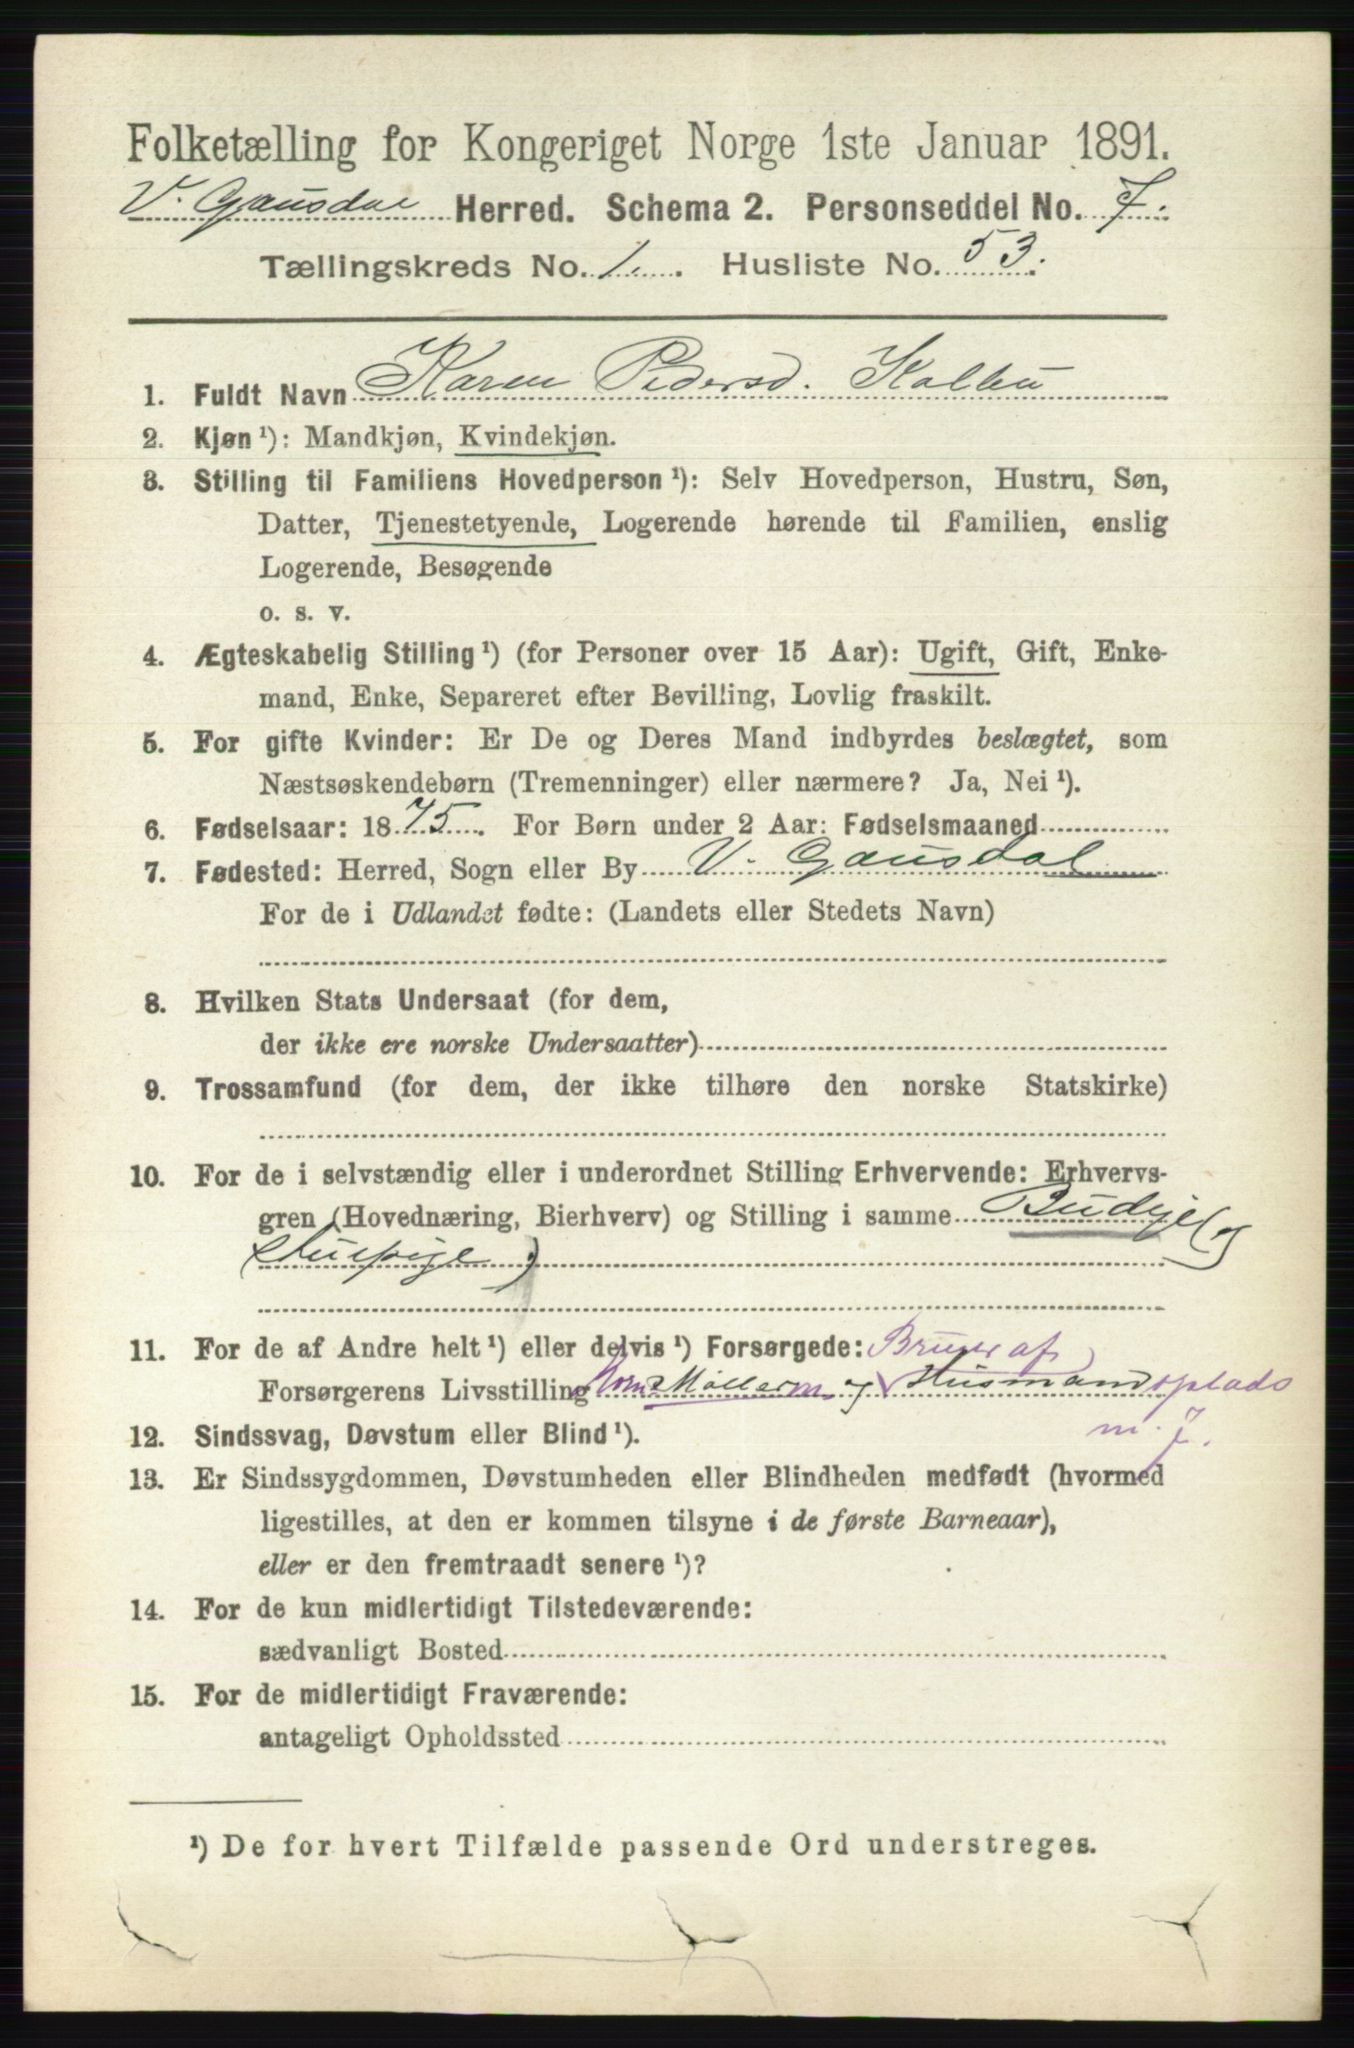 Folketælling for Kongeriget Norge 1ste Januar 1891.
V. Gausdal Herred. Schema 2. Personseddel No. 7.
Tællingskreds No. 1. Husliste No. 53.
1. Fuldt Navn Karen Pedersd. Kolbu
2. Kjøn ¹): Mandkjøn, Kvindekjøn.
3. Stilling til Familiens Hovedperson ¹): Selv Hovedperson, Hustru, Søn,
Datter, Tjenestetyende, Logerende hørende til Familien, enslig
Logerende, Besøgende
o. s. v.
4. Ægteskabelig Stilling ¹) (for Personer over 15 Aar): Ugift, Gift, Enke-
mand, Enke, Separeret efter Bevilling, Lovlig fraskilt.
5. For gifte Kvinder: Er De og Deres Mand indbyrdes beslægtet, som
Næstsøskendebørn (Tremenninger) eller nærmere? Ja, Nei ¹).
6. Fødselsaar: 1875. For Børn under 2 Aar: Fødselsmaaned
7. Fødested: Herred, Sogn eller By V. Gausdal
For de i Udlandet fødte: (Landets eller Stedets Navn)
8. Hvilken Stats Undersaat (for dem,
der ikke ere norske Undersaatter)
9. Trossamfund (for dem, der ikke tilhøre den norske Statskirke)
10. For de i selvstændig eller i underordnet Stilling Erhvervende: Erhvervs-
gren (Hovednæring, Bierhverv) og Stilling i samme Budeje (og
stuepige)
11. For de af Andre helt ¹) eller delvis ¹) Forsørgede: Bruger af
Forsørgerens Livsstilling Møller m. og Husmandsplads
m. J.
12. Sindssvag, Døvstum eller Blind ¹).
13. Er Sindssygdommen, Døvstumheden eller Blindheden medfødt (hvormed
ligestilles, at den er kommen tilsyne i de første Barneaar),
eller er den fremtraadt senere ¹)?
14. For de kun midlertidigt Tilstedeværende:
sædvanligt Bosted
15. For de midlertidigt Fraværende:
antageligt Opholdssted
¹) De for hvert Tilfælde passende Ord understreges.